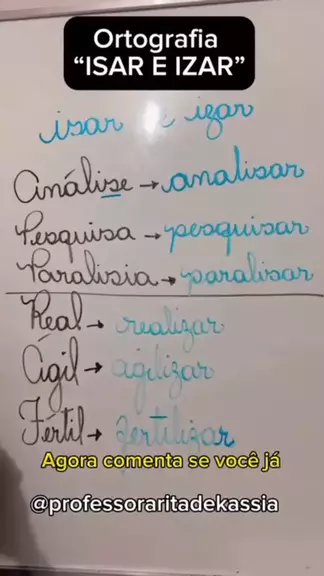 Ortografia
“ISAR E IZAR”
isar e izar
Análise → analisar
Pesquisa → pesquisar
Paralisia → paralisar
Real → realizar
Ágil → agilizar
Fértil → fertilizar
Agora comenta se você já
@professoraritadekassia